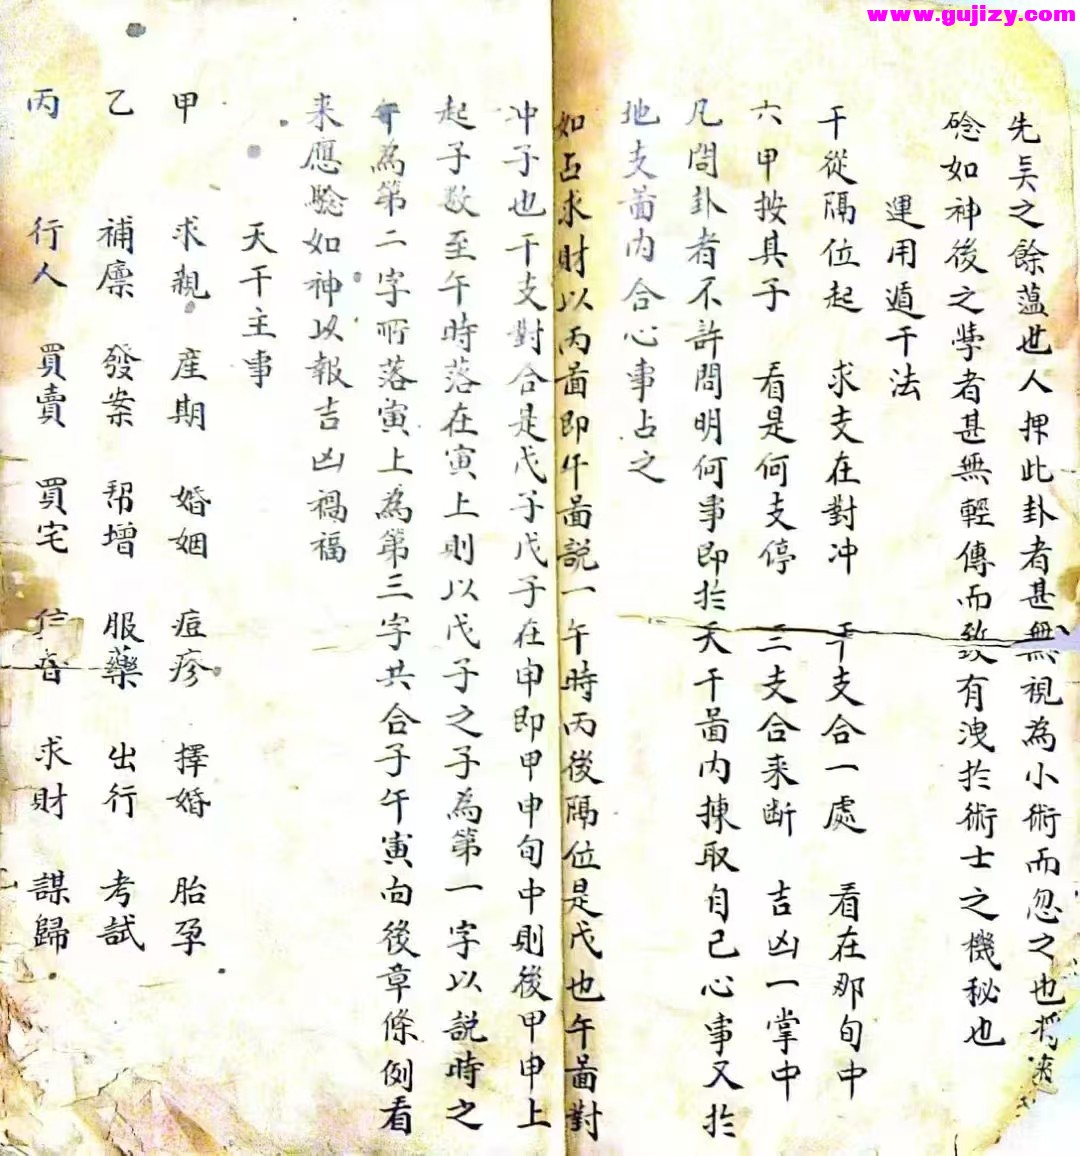 www.gujizy.com
先矣之餘蘊世人揲此卦者甚無視為小術而忽之也
騐如神後之學者甚無輕傳而致有洩扵術士之機秘也
運用遁干法
干從隔位起 求支在對冲 干支合一處 看在那旬中
六甲按其子 看是何支停 三支合来断 吉凶一掌中
凡問卦者不許問明何事即扵天干啚内揀取自己心事又扵
地支啚内合心事占之
如占求財以丙啚即午啚説一午時丙後隔位是戊也午啚對
冲子也干支對合是戊子戊子在申即甲申旬中則後甲申上
起子数至午時落在寅上則以戊子之子為第一字以説時之
午為第二字所落寅上為第三字共合子午寅向後章條例看
来應騐如神以報吉凶禍福
天干主事
甲 求親 産期 婚姻 痘疹 擇婚 胎孕
乙 補廪 發案 帮增 服藥 出行 考試
丙 行人 買賣 買宅 信音 求財 謀歸